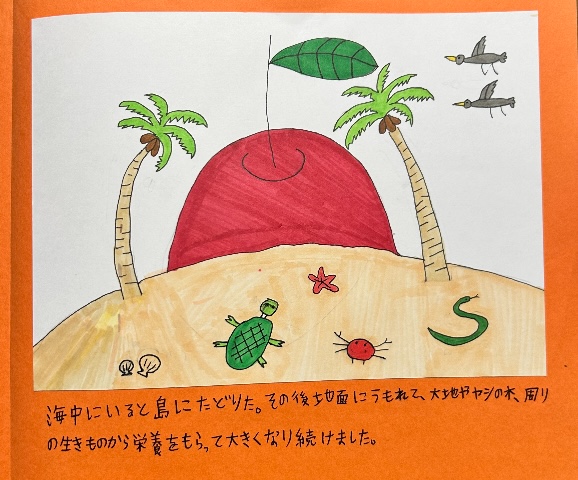 海中にいると島にたどりた。その後地面にうもれて、大地やヤシの木、周り
の生きものから栄養をもらって大きくなり続けました。